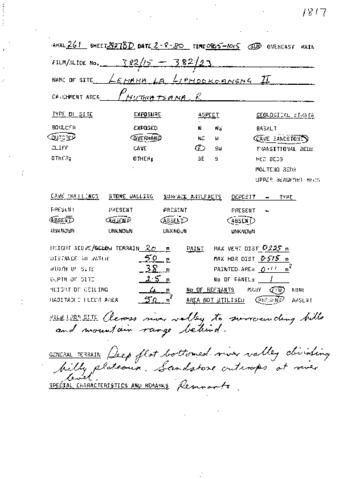 1817
ARAL 261 SHEET 2927BD DATE 2-8-80 TIME 0905-1015 SUN OVERCAST RAIN
FILM/SLIDE No. 382/15 - 382/23
NAME OF SITE LEHAHA LA LIPHOOKOANENG II
CATCHMENT AREA PHUTHIATSANA R
TYPE OF SITE EXPOSURE ASPECT GEOLOGICAL STRATA
BOULDER EXPOSED N NW BASALT
OUTCROP OVERHANG NE W CAVE SANDSTONE
CLIFF CAVE E SW TRANSITIONAL BEDS
OTHER: OTHER: SE S RED BEDS
MOLTENO BEDS
UPPER BEAUFORT BEDS
CAVE DWELLINGS STONE WALLING SURFACE ARTEFACTS DEPOSIT - TYPE
PRESENT PRESENT PRESENT PRESENT -
ABSENT ABSENT ABSENT ABSENT
UNKNOWN UNKNOWN UNKNOWN UNKNOWN
HEIGHT ABOVE/BELOW TERRAIN 20 m PAINT MAX VERT DIST 0.225 m
DISTANCE TO WATER 50 m MAX HOR DIST 0.515 m
WIDTH OF SITE 38 m PAINTED AREA 0.11 m²
DEPTH OF SITE 2.5 m No OF PANELS 1
HEIGHT OF CEILING 4 m No OF REMNANTS MANY FEW NONE
HABITABLE FLOOR AREA 50 m² AREA NOT UTILISED PRESENT ABSENT
VIEW FROM SITE Across river valley to surrounding hills
and mountain range behind.
GENERAL TERRAIN Deep flat bottomed river valley dividing
hilly plateaux. Sandstone outcrops at river
level.
SPECIAL CHARACTERISTICS AND REMARKS Remnants.